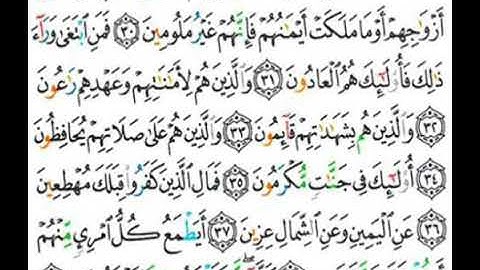 أَزْوَاجِهِمْ أَوْ مَا مَلَكَتْ أَيْمَانُهُمْ فَإِنَّهُمْ غَيْرُ مَلُومِينَ ٣٠ فَمَنِ ٱبْتَغَىٰ وَرَآءَ
ذَٰلِكَ فَأُو۟لَٰٓئِكَ هُمُ ٱلْعَادُونَ ٣١ وَٱلَّذِينَ هُمْ لِأَمَانَاتِهِمْ وَعَهْدِهِمْ رَاعُونَ
٣٢ وَٱلَّذِينَ هُم بِشَهَادَاتِهِمْ قَآئِمُونَ ٣٣ وَٱلَّذِينَ هُمْ عَلَىٰ صَلَاتِهِمْ يُحَافِظُونَ
٣٤ أُو۟لَٰٓئِكَ فِى جَنَّاتٍ مُّكْرَمُونَ ٣٥ فَمَالِ ٱلَّذِينَ كَفَرُوا۟ قِبَلَكَ مُهْطِعِينَ
٣٦ عَنِ ٱلْيَمِينِ وَعَنِ ٱلشِّمَالِ عِزِينَ ٣٧ أَيَطْمَعُ كُلُّ ٱمْرِئٍ مِّنْهُمْ